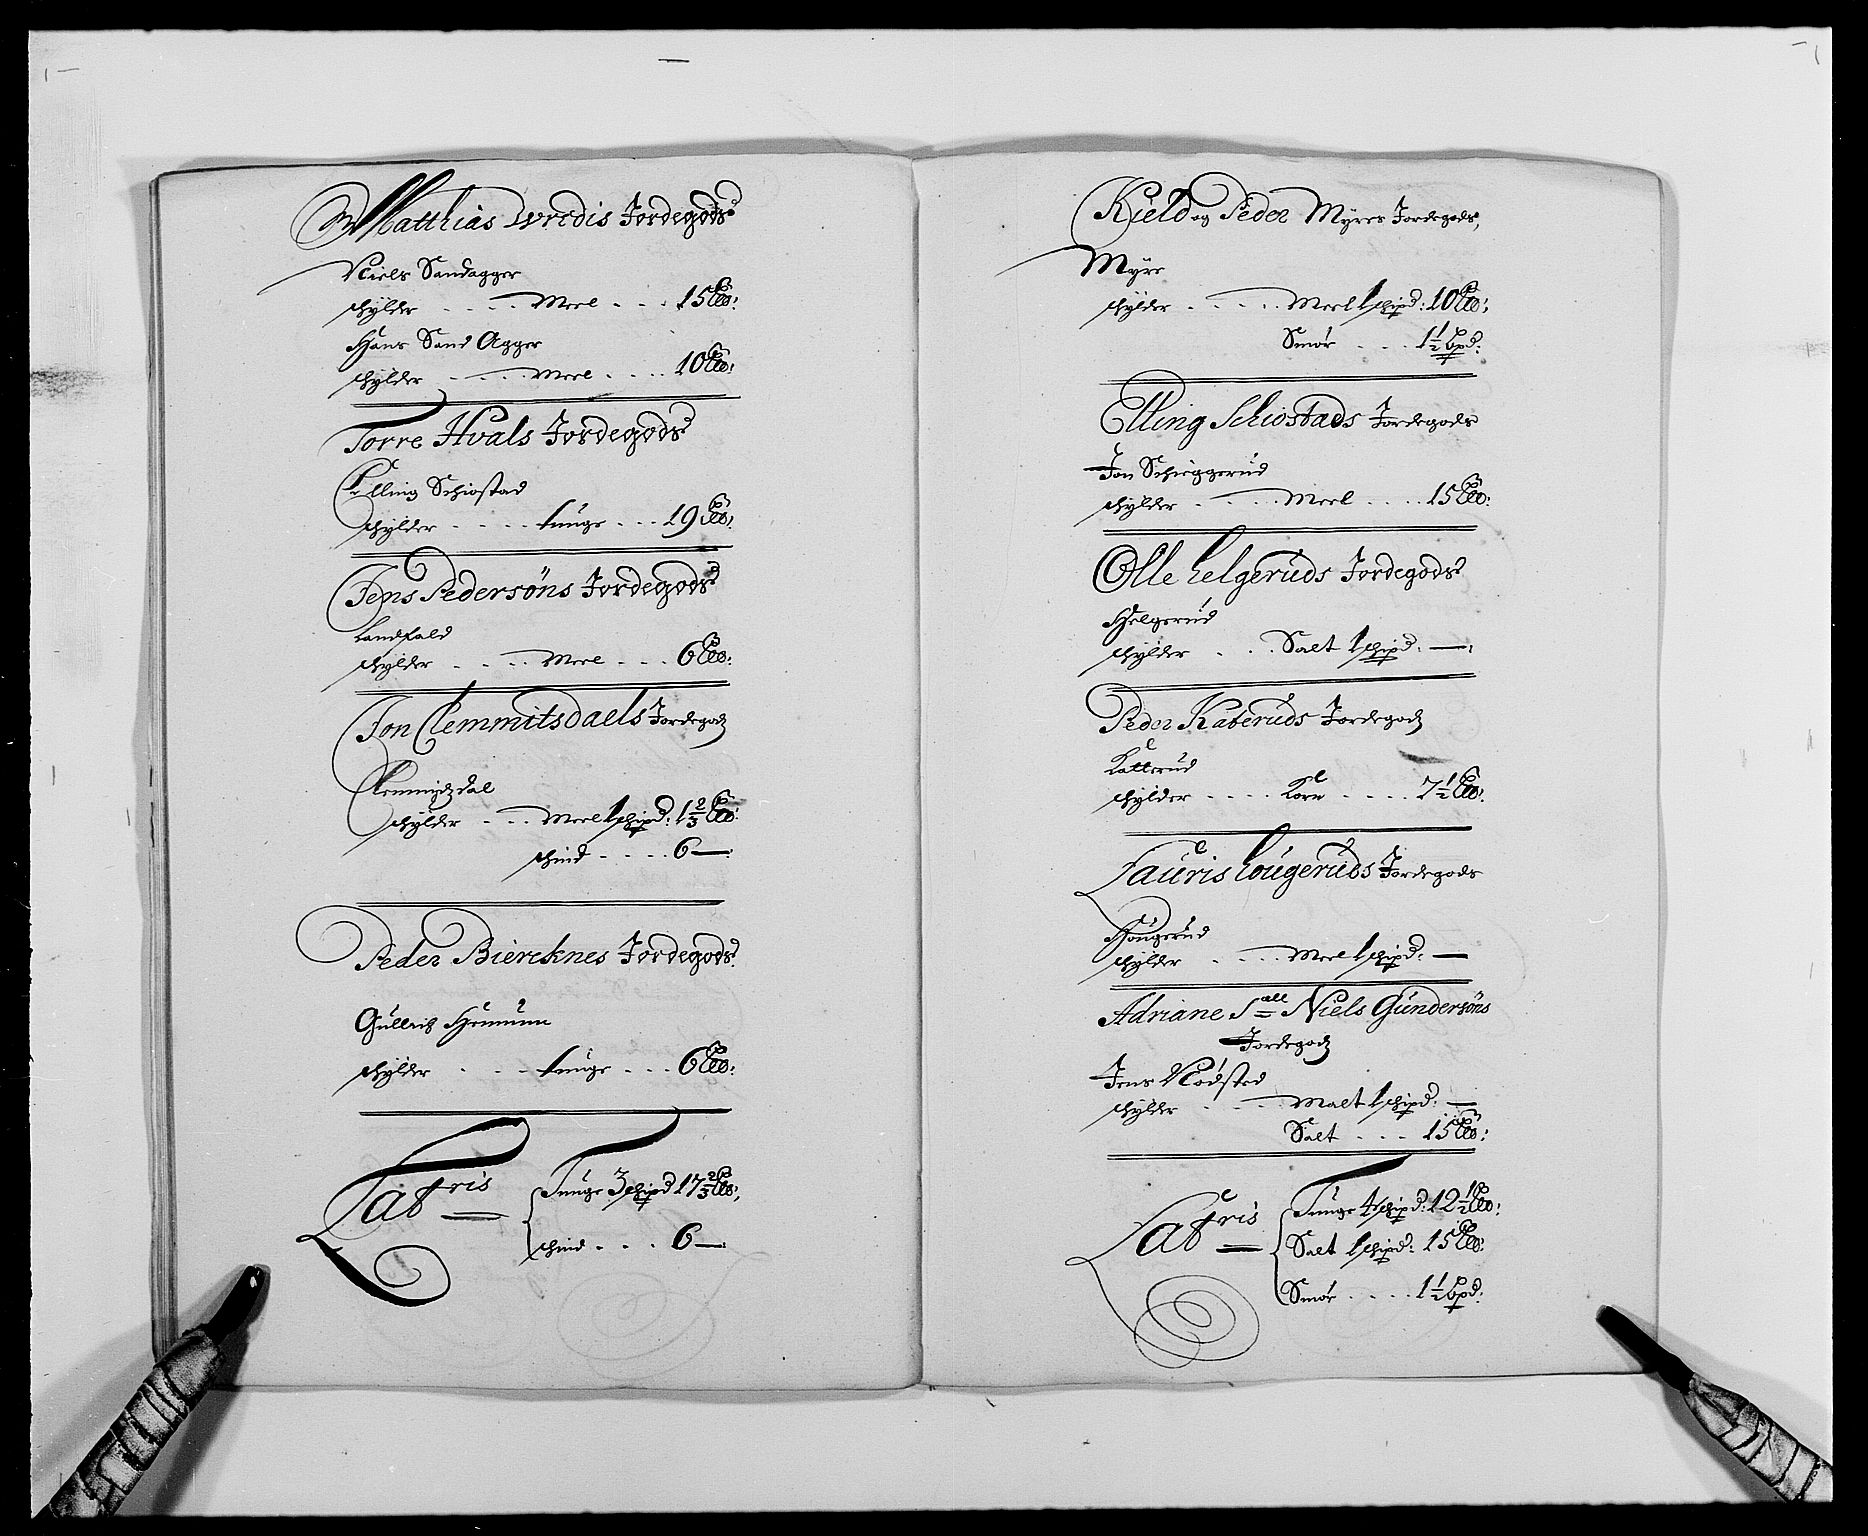 Matthias Wredis Jordegods
Niels Sandagger
schylder - - - - Meel - - - 15 ℔:
Hans Sand Agger
schylder - - - - Meel - - - - 10 ℔:
Torre Hvals Jordegods
Elling Schiostad
schylder - - - - tunge - - - 19 ℔:
Jens Pedersøns Jordegods
Landfald
schylder - - - - Meel - - - 6 ℔:
Jon Clemmitsdaels Jordegodz
Clemmitzdal
schylder - - - Meel 1 schipd: 1 2/3 ℔:
schind - - - - 6 —:
Peder Biercknes Jordegods
Gullich
schylder - - - tunge - - - 6 ℔:
Lat ris = Tunge 3 schipd 17 2/3 ℔:
schind - - - 6 —:
Kield og Peder Myres Jordegods,
Myre
schylder - - - - - Meel 1 schipd: 10 ℔:
Smør - - - - 1 1/2 bpd:
Elling Schiostads Jordegods
Jon Schieggerud
schylder - - - - Meel - - - - 15 ℔:
Olle Helgeruds Jordegods
Helgerud
schylder - - - Salt 1 schipd: —:
Peder Kateruds Jordegodz
Katterud
schylder - - - - Korn - - - - - 7 1/2 ℔:
Lauris Hougeruds Jordegods
Hougerud
schylder - - - - Meel 1 schipd: —
Adriane S all Niels Gundersøns
Jordegodz
Jens Rødsted
schylder - - - - Malt 1 schipd: —
Salt - - - - 15 ℔:
Lat ris = Tunge 4 schipd: 12 1/2 ℔:
Salt 1 schipd: 15 ℔:
Smør - - - - 1 1/2 bpd: